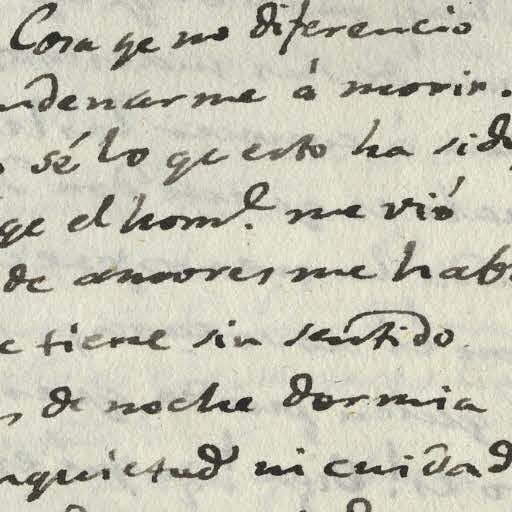 Cosa qe no diferencio
ndenarme á morir.
sé lo qe esto ha sido
qe el homᵉ. me vió
de amores me hab
e tiene sin sentido
de noche dormia
nquietud ni cuidad